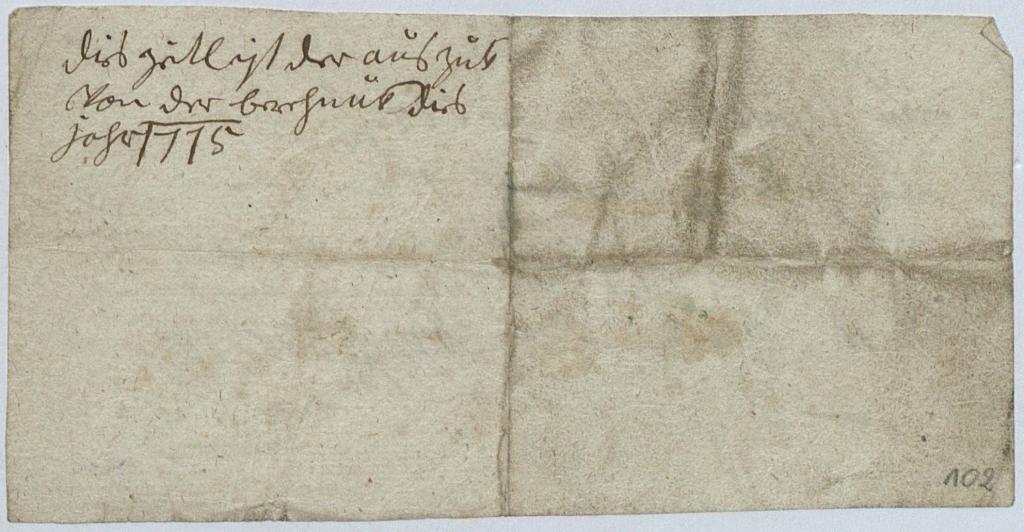 dis zetl ist der aus zuk
von der berehnuk dis
johr 1775
102